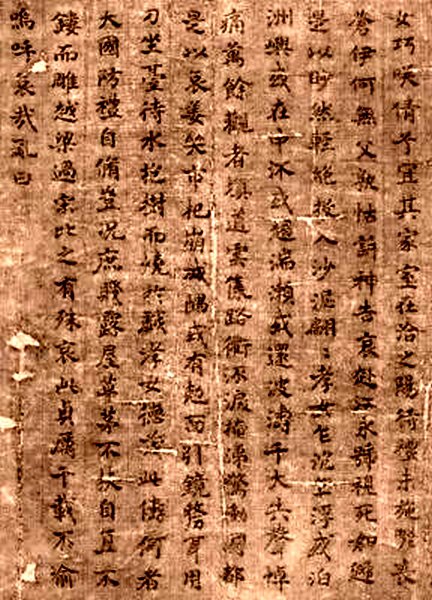 女巧咲倩兮宜其家室在洽之陽待禮未施嗟喪
蒼伊何無父孰怙訴神告哀赴江永號視死如歸
是以眇然輕絕投入沙泥翩〻孝女乍沉乍浮或泊
洲嶼或在中流或趨湍瀨或還波濤千夫失聲悼
痛萬餘觀者填道雲集路衢流淚掩涕驚慟國都
是以哀姜哭市杞崩城隅或有剋面引鏡剺耳用
刀坐臺待水抱樹而燒於戲孝女德茂此儔何者
大國防禮自脩豈況庶賤露屋草茅不扶自直不
鏤而雕越梁過宋比之有殊哀此貞厲千載不渝
嗚呼哀哉亂曰